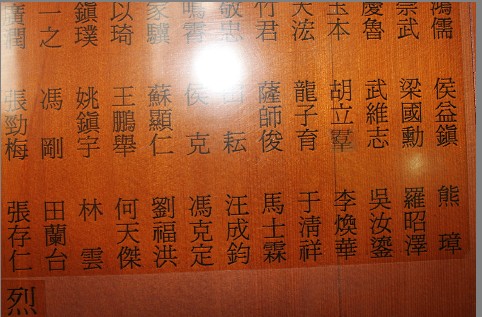 鴻儒 侯益鎮 熊璋
崇武 梁國勳 羅昭澤
慶魯 武維志 吳汝鎏
本 胡立羣 李煥華
浤 龍子育 于清祥
竹君 薩師俊 馬士霖
敬忠 耘 汪成鈞
鳴霄 侯克 馮克定
家驥 蘇顯仁 劉福洪
以琦 王鵬舉 何天傑
鎮璞 姚鎮宇 林雲
一之 馮剛 田蘭台
廣潤 張勁梅 張存仁
烈